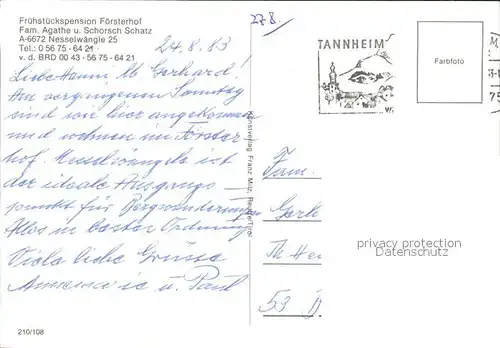 Frühstückspension Försterhof
Fam. Agathe u. Schorsch Schatz
A-6672 Nesselwängle 25
Tel.: 0 56 75 - 64 21
v. d. BRD 00 43 - 56 75 - 64 21
24.8.83
27.8.
Liebe Hanni, u. Gerhard!
Am vergangenen Sonntag
sind wir hier angekommen
und wohnen im Förster-
hof. Nesselwängle ist
der ideale Ausgangs-
punkt für Bergwanderungen
Alles in bester Ordnung
Viele liebe Grüsse
Annemarie u. Paul
210/108
Franz Milz, Reutte/Tirol
TANNHEIM
Farbfoto
Fam.
Gerh
Th Heu
53
privacy protection
Datenschutz